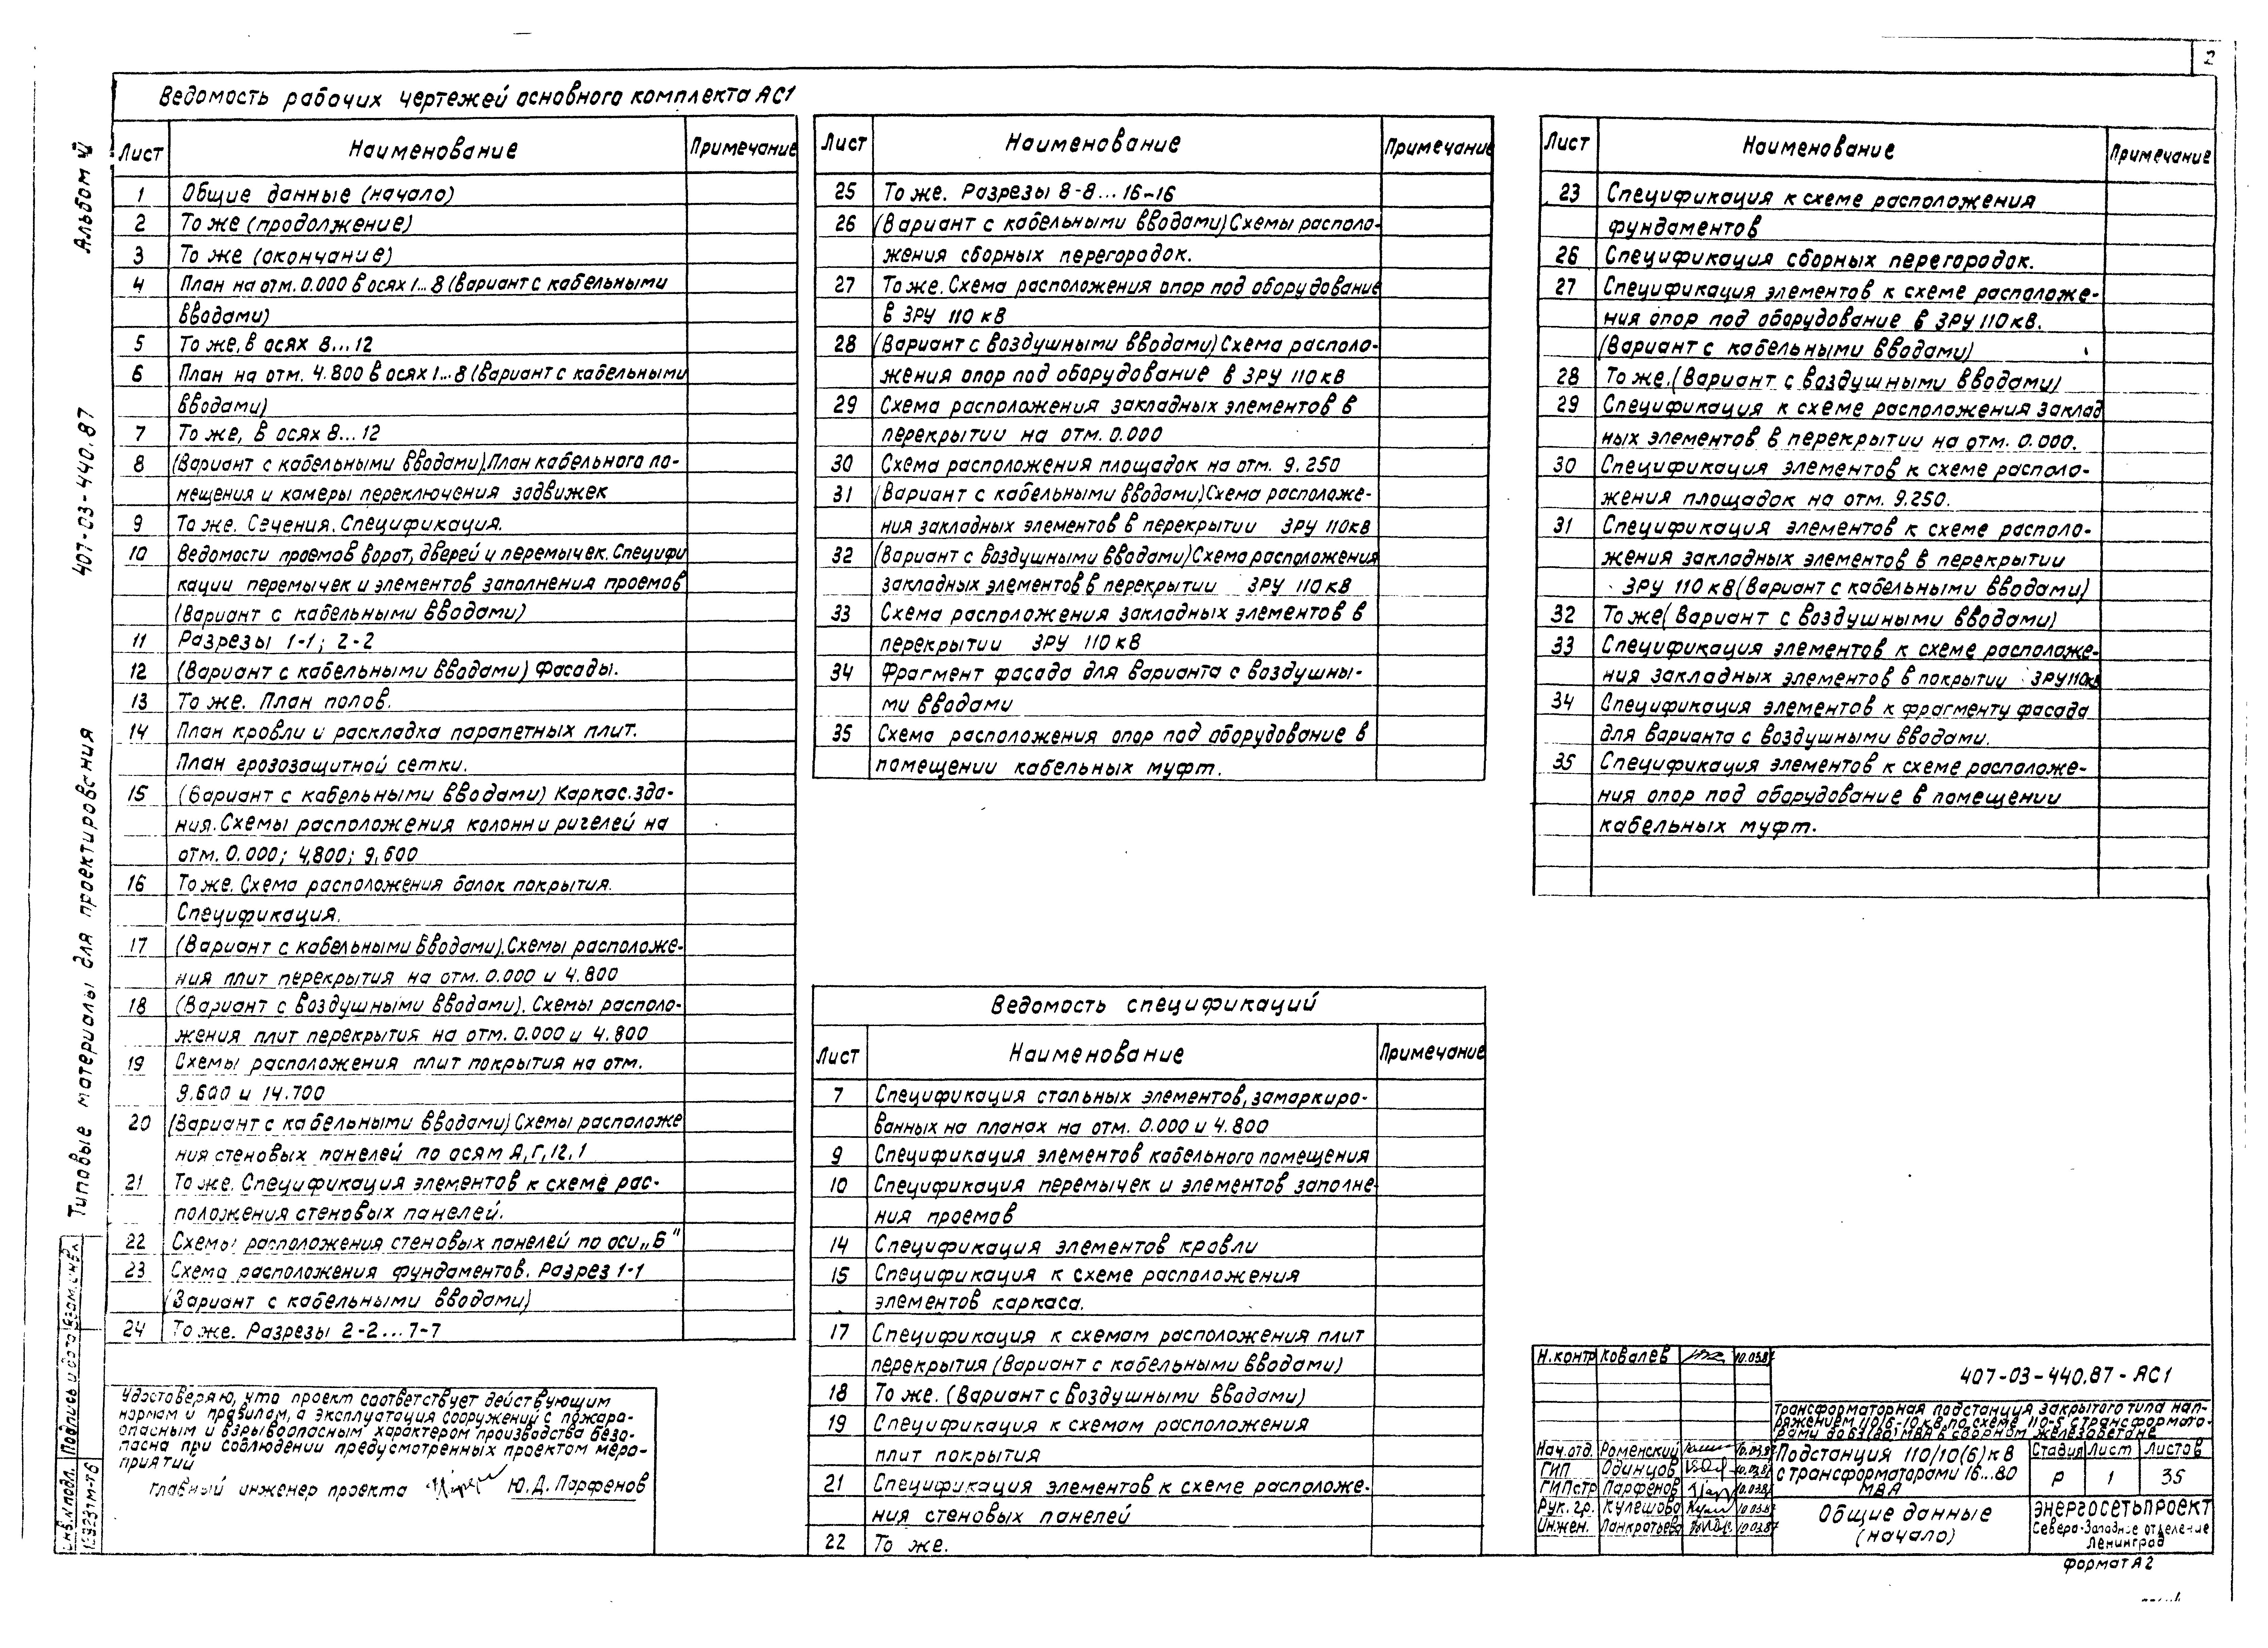 2
Ведомость рабочих чертежей основного комплекта АС1
Лист Наименование Примечание
1 Общие данные (начало)
2 То же (продолжение)
3 То же (окончание)
4 План на отм. 0.000 в осях 1...8 (вариант с кабельными
вводами)
5 То же, в осях 8...12
6 План на отм. 4.800 в осях 1...8 (вариант с кабельными
вводами)
7 То же, в осях 8...12
8 (Вариант с кабельными вводами). План кабельного по-
мещения и камеры переключения задвижек
9 То же. Сечения. Спецификация.
10 Ведомости проемов ворот, дверей и перемычек. Специфи
кации перемычек и элементов заполнения проемов
(Вариант с кабельными вводами)
11 Разрезы 1-1; 2-2
12 (Вариант с кабельными вводами) Фасады.
13 То же. План полов.
14 План кровли и раскладка парапетных плит.
План грозозащитной сетки.
15 (вариант с кабельными вводами) Каркас зда-
ния. Схемы расположения колонн и ригелей на
отм. 0.000; 4,800; 9,600
16 То же. Схема расположения балок покрытия.
Спецификация.
17 (Вариант с кабельными вводами). Схемы расположе-
ния плит перекрытия на отм. 0.000 и 4.800
18 (Вариант с воздушными вводами). Схемы располо-
жения плит перекрытия на отм. 0.000 и 4.800
19 Схемы расположения плит покрытия на отм.
9.600 и 14.700
20 (Вариант с кабельными вводами) Схемы расположе
ния стеновых панелей по осям А, Г, 12, 1
21 То же. Спецификация элементов к схеме рас-
положения стеновых панелей.
22 Схемы расположения стеновых панелей по оси „Б"
23 Схема расположения фундаментов. Разрез 1-1
(Вариант с кабельными вводами)
24 То же. Разрезы 2-2...7-7
Лист Наименование Примечание
25 То же. Разрезы 8-8...16-16
26 (Вариант с кабельными вводами) Схемы располо-
жения сборных перегородок.
27 То же. Схема расположения опор под оборудование
в ЗРУ 110 кВ
28 (Вариант с воздушными вводами) Схема располо-
жения опор под оборудование в ЗРУ 110 кВ
29 Схема расположения закладных элементов в
перекрытии на отм. 0.000
30 Схема расположения площадок на отм. 9.250
31 (Вариант с кабельными вводами) Схема расположе-
ния закладных элементов в перекрытии ЗРУ 110кВ
32 (Вариант с воздушными вводами) Схема расположения
закладных элементов в перекрытии ЗРУ 110 кВ
33 Схема расположения закладных элементов в
перекрытии ЗРУ 110 кВ
34 Фрагмент фасада для варианта с воздушны-
ми вводами
35 Схема расположения опор под оборудование в
помещении кабельных муфт.
Ведомость спецификаций
Лист Наименование Примечание
7 Спецификация стальных элементов, замаркиро-
ванных на планах на отм. 0.000 и 4.800
9 Спецификация элементов кабельного помещения
10 Спецификация перемычек и элементов заполне
ния проемов
14 Спецификация элементов кровли
15 Спецификация к схеме расположения
элементов каркаса.
17 Спецификация к схемам расположения плит
перекрытия (Вариант с кабельными вводами)
18 То же. (Вариант с воздушными вводами)
19 Спецификация к схемам расположения
плит покрытия
21 Спецификация элементов к схеме расположе-
ния стеновых панелей
22 То же.
Лист Наименование Примечание
23 Спецификация к схеме расположения
фундаментов
26 Спецификация сборных перегородок.
27 Спецификация элементов к схеме расположе-
ния опор под оборудование в ЗРУ 110 кВ.
(Вариант с кабельными вводами)
28 То же. (Вариант с воздушными вводами)
29 Спецификация к схеме расположения заклад
ных элементов в перекрытии на отм. 0.000.
30 Спецификация элементов к схеме располо-
жения площадок на отм. 9.250.
31 Спецификация элементов к схеме располо-
жения закладных элементов в перекрытии
ЗРУ 110 кВ (Вариант с кабельными вводами)
32 То же (Вариант с воздушными вводами)
33 Спецификация элементов к схеме расположе-
ния закладных элементов в покрытии ЗРУ 110кВ
34 Спецификация элементов к фрагменту фасада
для варианта с воздушными вводами.
35 Спецификация элементов к схеме расположе-
ния опор под оборудование в помещении
кабельных муфт.
Удостоверяю, что проект соответствует действующим
нормам и правилам, а эксплуатация сооружений с пожаро-
опасным и взрывоопасным характером производства безо-
пасна при соблюдении предусмотренных проектом меро-
приятий
Главный инженер проекта Ю.Д. Парфенов
Н.контр Ковалев 10.03.87
407-03-440.87-АС1
Трансформаторная подстанция закрытого типа нап-
ряжением 110/6-10 кВ по схеме 110-5 с трансформато-
рами до 63(80) МВА в сборном железобетоне
Нач.отд. Роменский 10.03.87
ГИП Одинцов 10.03.87
ГИПстр Парфенов 10.03.87
Рук. гр. Кулешова 10.03.87
Инжен. Панкратьева 10.03.87
Подстанция 110/10(6) кВ
с трансформаторами 16...80
МВА
Стадия Лист Листов
Р 1 35
Общие данные
(начало)
ЭНЕРГОСЕТЬПРОЕКТ
Северо-Западное отделение
Ленинград
Формат А2
Альбом
407-03-440.87
Типовые материалы для проектирования
Инв.N подл. Подпись и дата Взам.инв.